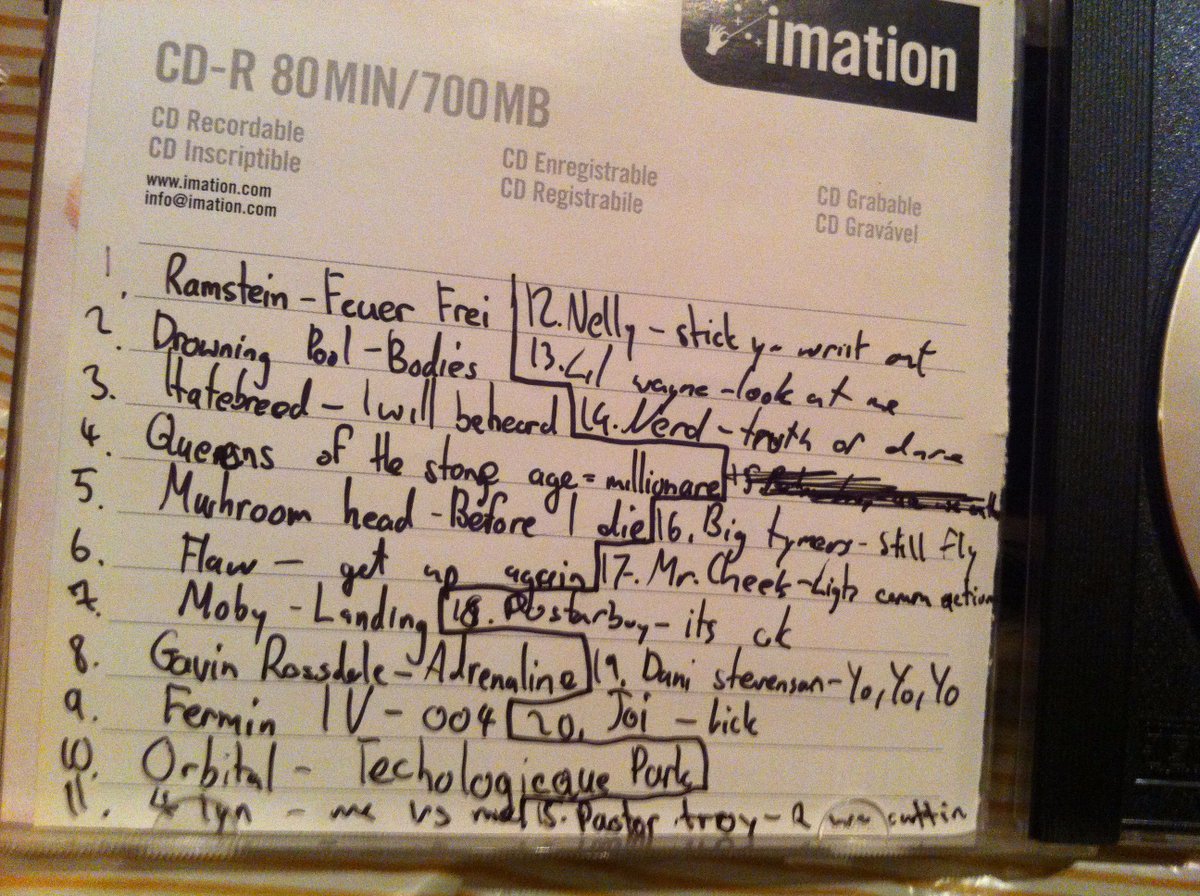 imation
CD-R 80MIN/700MB
CD Recordable
CD Inscriptible
CD Enregistrable
CD Registrabile
CD Grabable
CD Gravável
www.imation.com
info@imation.com
1. Ramstein - Feuer Frei
2. Drowning Pool - Bodies
3. Hatebreed - I will beheard
4. Queens of the stone age = millionare
5. Mushroom head - Before I die
6. Flaw - get up again
7. Moby - Landing
8. Gavin Rossdale - Adrenaline
9. Fermin IV - 004
10. Orbital - Techologicque Park
11. 4 lyn - me vs me
12. Nelly - stick y wrist out
13. Lil wayne - look at me
14. Nerd - truth or dare
15
16. Big tymers - still fly
17. Mr. Cheek - Ligh camm action
18. Postarboy - its ok
19. Dani stevenson - Yo, Yo, Yo
20. Joi - Lick
15. Pastor troy - R we cuttin